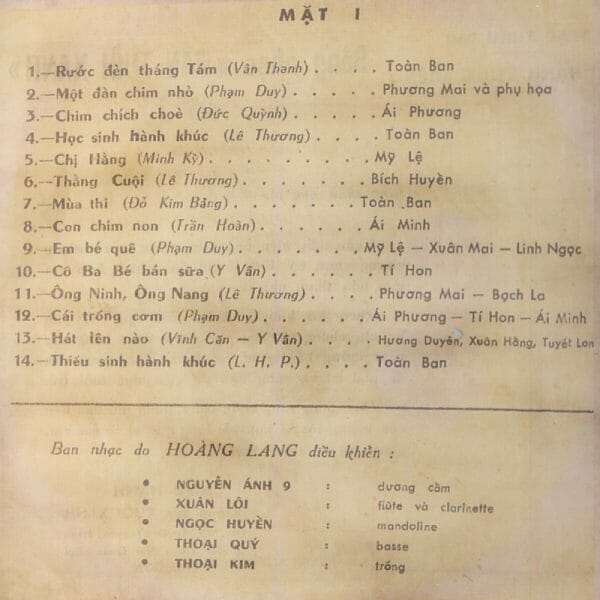 MẶT I
1.—Rước đèn tháng Tám (Vân Thanh) . . . . Toàn Ban
2.—Một đàn chim nhỏ (Phạm Duy) . . . . . Phương Mai và phụ họa
3.—Chim chích choè (Đức Quỳnh) . . . . . Ái Phương
4.—Học sinh hành khúc (Lê Thương) . . . . Toàn Ban
5.—Chị Hằng (Minh Kỳ) . . . . . . . Mỹ Lệ
6.—Thằng Cuội (Lê Thương) . . . . . . Bích Huyền
7.—Mùa thi (Đỗ Kim Bảng) . . . . . . Toàn Ban
8.—Con chim non (Trần Hoàn) . . . . . Ái Minh
9.—Em bé quê (Phạm Duy) . . . . . . Mỹ Lệ — Xuân Mai — Linh Ngọc
10.—Cô Ba Bé bán sữa (Y Vân) . . . . . Tí Hon
11.—Ông Ninh, Ông Nang (Lê Thương) . . . . Phương Mai — Bạch La
12.—Cái trống cơm (Phạm Duy) . . . . . . Ái Phương — Tí Hon — Ái Minh
13.—Hát lên nào (Vĩnh Căn — Y Vân) . . . . Hương Duyên, Xuân Hằng, Tuyết Lan
14.—Thiếu sinh hành khúc (L. H. P.) . . . . Toàn Ban
Ban nhạc do HOÀNG LANG điều khiển :
• NGUYỄN ÁNH 9 : dương cầm
• XUÂN LÔI : flûte và clarinette
• NGỌC HUYỀN : mandoline
• THOẠI QUÝ : basse
• THOẠI KIM : trống